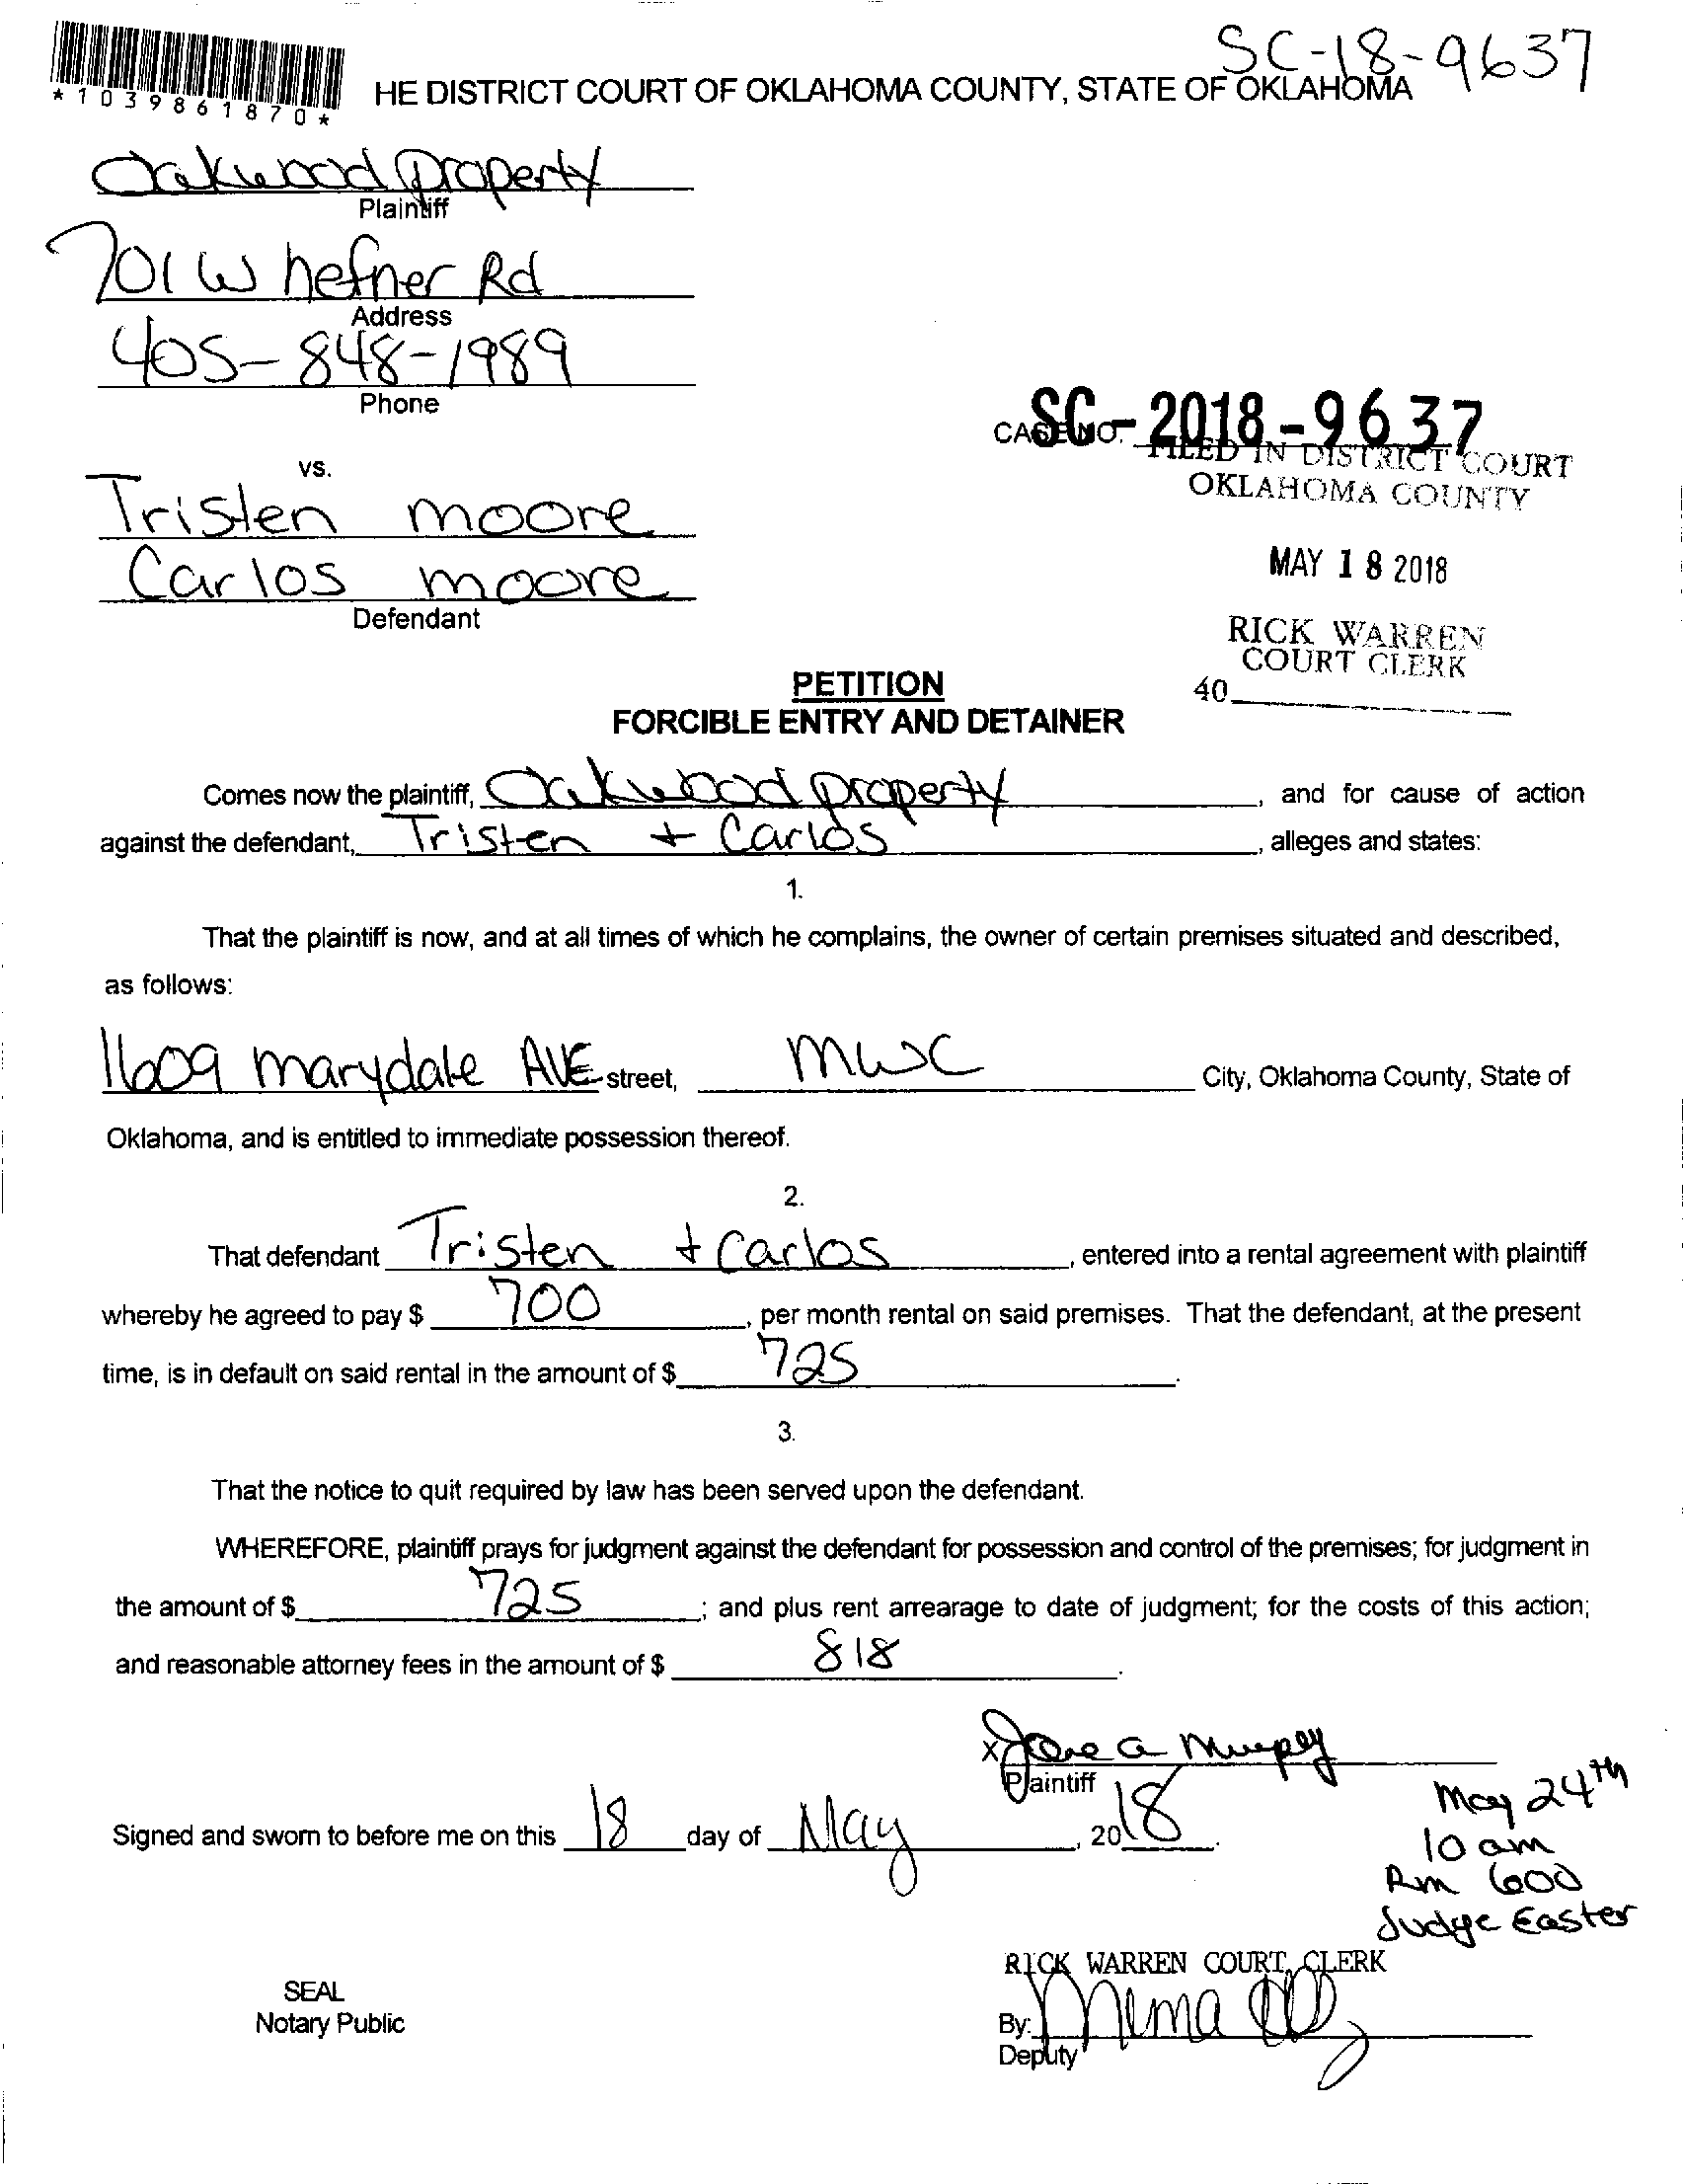 SC-18-9637
*1039861870*
HE DISTRICT COURT OF OKLAHOMA COUNTY, STATE OF OKLAHOMA
Oakwood property
Plaintiff
701 W hefner Rd
Address
405-848-1989
Phone
CASE NO. SC-2018-9637
FILED IN DISTRICT COURT
OKLAHOMA COUNTY
vs.
Tristen moore
Carlos moore
Defendant
MAY 18 2018
RICK WARREN
COURT CLERK
40
PETITION
FORCIBLE ENTRY AND DETAINER
Comes now the plaintiff, Oakwood property, and for cause of action
against the defendant, Tristen + Carlos, alleges and states:
1.
That the plaintiff is now, and at all times of which he complains, the owner of certain premises situated and described,
as follows:
1609 marydale AVE street, mwc City, Oklahoma County, State of
Oklahoma, and is entitled to immediate possession thereof.
2.
That defendant Tristen + Carlos, entered into a rental agreement with plaintiff
whereby he agreed to pay $ 700, per month rental on said premises. That the defendant, at the present
time, is in default on said rental in the amount of $ 725.
3.
That the notice to quit required by law has been served upon the defendant.
WHEREFORE, plaintiff prays for judgment against the defendant for possession and control of the premises; for judgment in
the amount of $ 725; and plus rent arrearage to date of judgment; for the costs of this action;
and reasonable attorney fees in the amount of $ 818.
x
Plaintiff
Signed and sworn to before me on this 18 day of May, 2018.
May 24th
10 am
Rm 600
Judge Easter
RICK WARREN COURT CLERK
SEAL
Notary Public
By:
Deputy